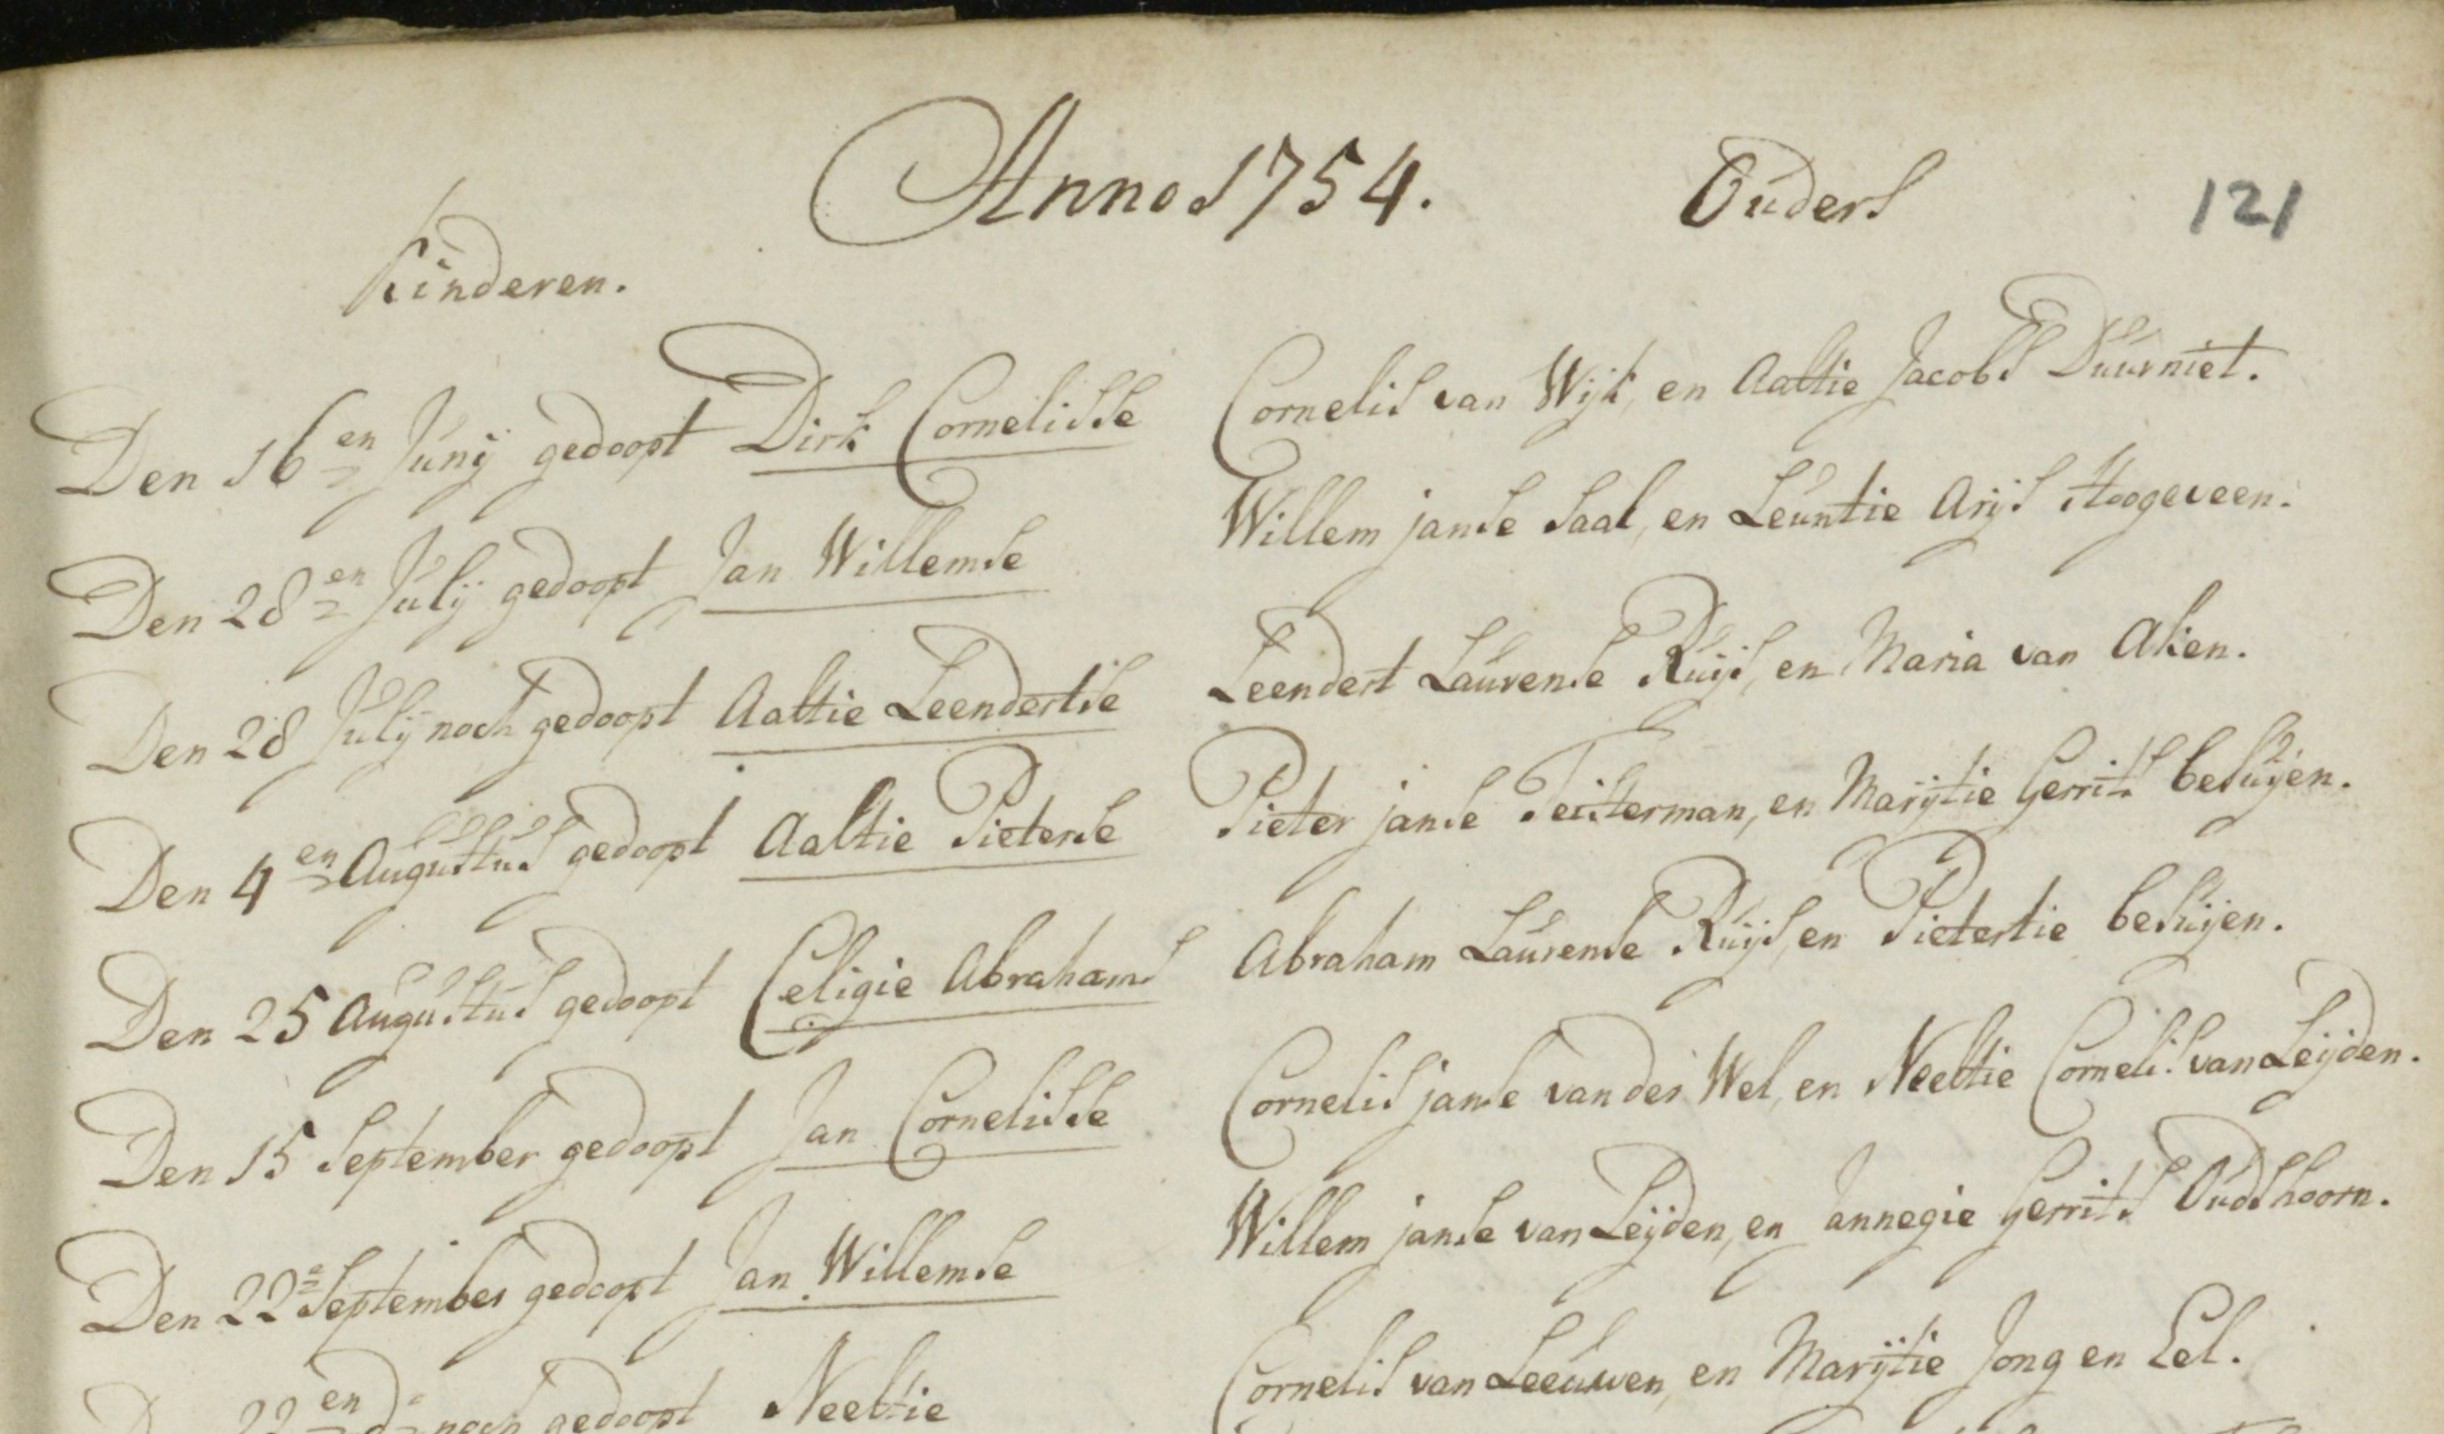 Anno 1754. Ouders 121
Kinderen.
Den 16en Junij gedoopt Dirk Cornelisse Cornelis van Wijk, en Aaltie Jacobs Duurniet.
Den 28en Julij gedoopt Jan Willemse Willem janse Saal, en Leuntie Arijs Hoogeveen.
Den 28 Julij noch gedoopt Aaltie Leendertse Leendert Laurense Ruijs, en Maria van Aken.
Den 4en Augustus gedoopt Aaltie Pieterse Pieter janse Teisterman, en Marijtie Gerrits besuijen.
Den 25 Augustus gedoopt Celigie Abrahams Abraham Laurense Ruijs, en Pietertie besuijen.
Den 15 September gedoopt Jan Cornelisse Cornelis janse van der Wel, en Neeltie Cornelis van Leijden.
Den 22e September gedoopt Jan Willemse Willem janse van Leijden, en Jannegie Gerrits Oudshoorn.
22en do noch gedoopt Neeltie Cornelis van Leeuwen, en Marijtie Jong en Eel.